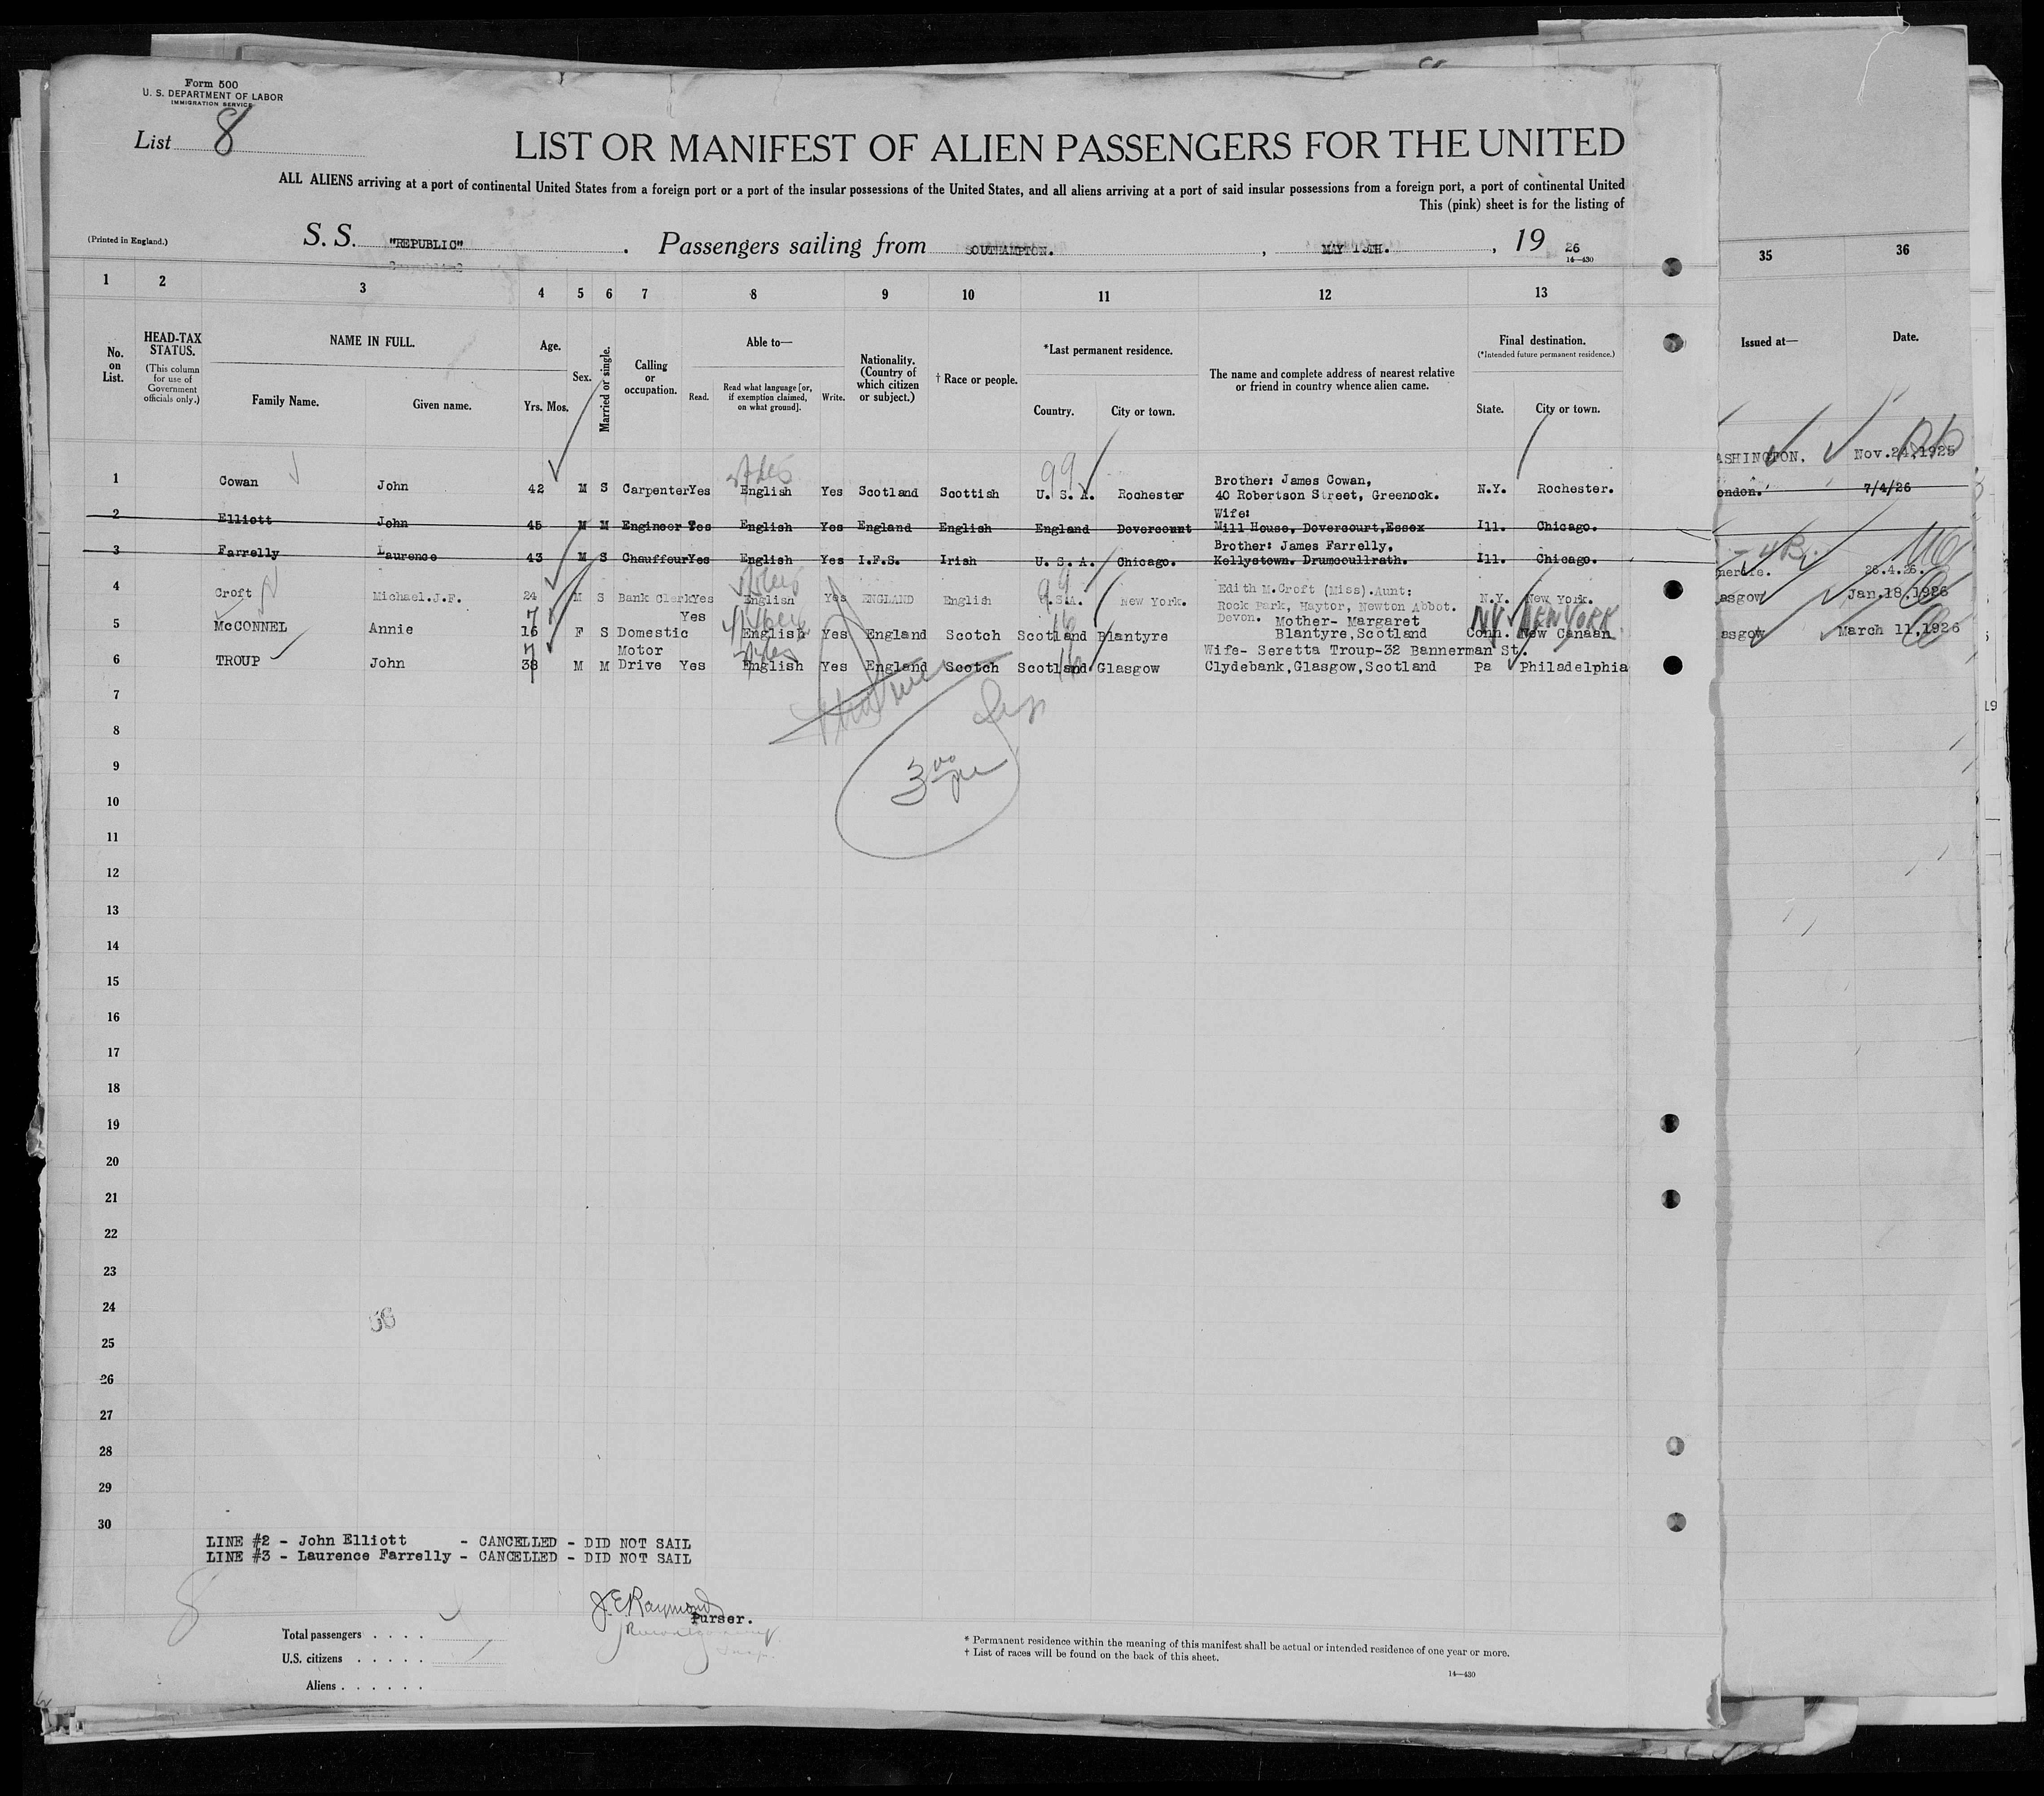 Form 500
U. S. DEPARTMENT OF LABOR
IMMIGRATION SERVICE
List 8
LIST OR MANIFEST OF ALIEN PASSENGERS FOR THE UNITED
ALL ALIENS arriving at a port of continental United States from a foreign port or a port of the insular possessions of the United States, and all aliens arriving at a port of said insular possessions from a foreign port, a port of continental United
This (pink) sheet is for the listing of
(Printed in England.)
S. S. "REPUBLIC" . Passengers sailing from SOUTHAMPTON. , MAY TH. , 19 26
14—430
1 2 3 4 5 6 7 8 9 10 11 12 13 35 36
No. on List.
HEAD-TAX STATUS.
(This column for use of Government officials only.)
NAME IN FULL.
Family Name. Given name.
Age.
Yrs. Mos.
Sex.
Married or single.
Calling or occupation.
Able to—
Read. Read what language [or, if exemption claimed, on what ground]. Write.
Nationality. (Country of which citizen or subject.)
† Race or people.
*Last permanent residence.
Country. City or town.
The name and complete address of nearest relative or friend in country whence alien came.
Final destination.
(*Intended future permanent residence.)
State. City or town.
Issued at— Date.
99
Brother: James Cowan,
1 Cowan John 42 M S Carpenter Yes English Yes Scotland Scottish U. S. A. Rochester 40 Robertson Street, Greenock. N.Y. Rochester. ASHINGTON. Nov.24,1925
Wife:
2 Elliott John 45 M M Engineer Yes English Yes England English England Dovercourt Mill House, Dovercourt,Essex Ill. Chicago. ondon. 7/4/26
Brother: James Farrelly,
3 Farrelly Laurence 43 M S Chauffeur Yes English Yes I.F.S. Irish U. S. A. Chicago. Kellystown. Drumcullrath. Ill. Chicago.
99
Edith M.Croft (Miss).Aunt:
4 Croft Michael.J.F. 24 M S Bank Clerk Yes English Yes ENGLAND English U.S.A. New York. Rock Park, Haytor, Newton Abbot. N.Y. New York. 26.4.26.
Devon.
Mother- Margaret NY NEW YORK
5 McCONNEL Annie 16 F S Domestic Yes English Yes England Scotch Scotland Blantyre Blantyre,Scotland Conn. New Canaan asgow Jan.18,1926
Wife- Seretta Troup-32 Bannerman St.
6 TROUP John 38 M M Motor Drive Yes English Yes England Scotch Scotland Glasgow Clydebank,Glasgow,Scotland Pa Philadelphia asgow March 11,1926
7
8
9
10
11
12
13
14
15
16
17
18
19
20
21
22
23
24
25
26
27
28
29
30
LINE #2 - John Elliott - CANCELLED - DID NOT SAIL
LINE #3 - Laurence Farrelly - CANCELLED - DID NOT SAIL
J.E.Raymond
Purser.
Total passengers . . . .
U.S. citizens . . . . .
Aliens . . . . . .
* Permanent residence within the meaning of this manifest shall be actual or intended residence of one year or more.
† List of races will be found on the back of this sheet.
14—430